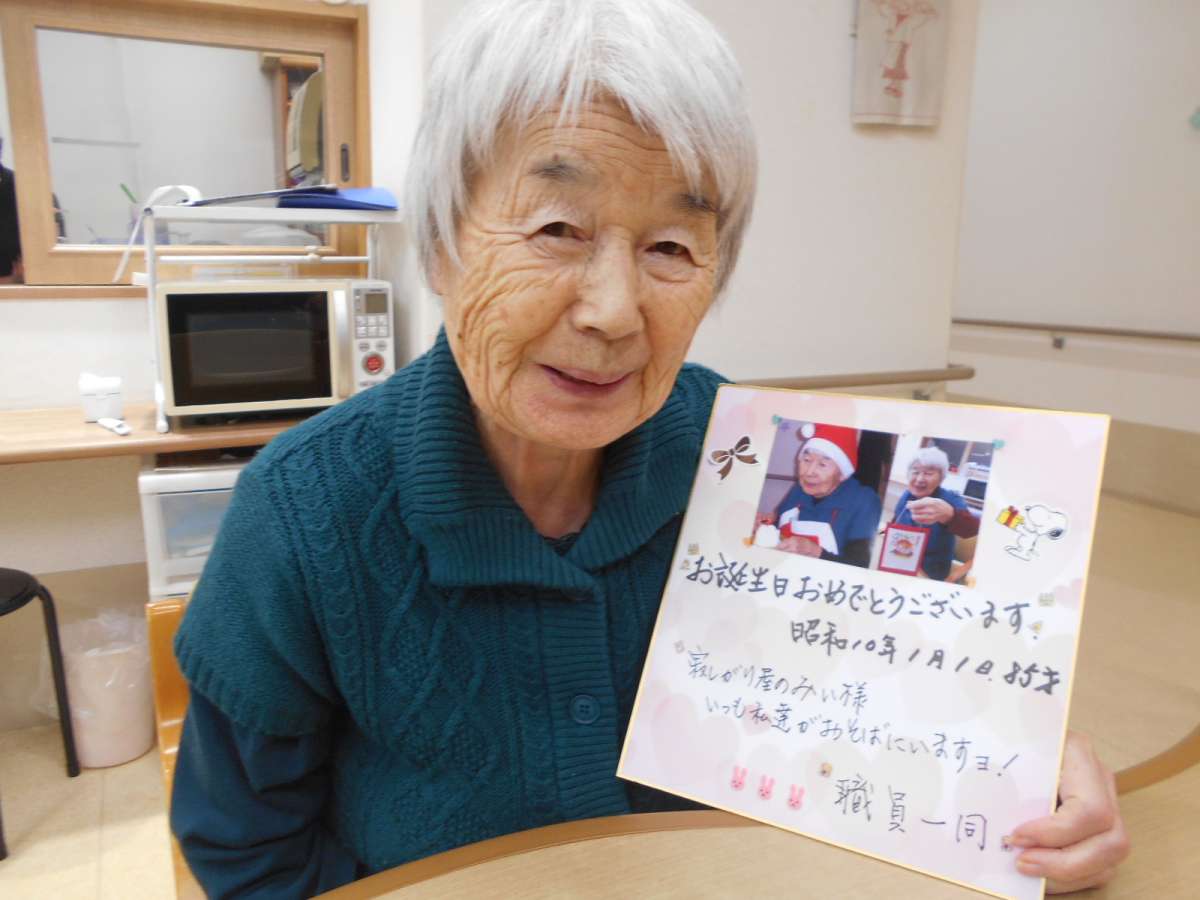 お誕生日おめでとうございます!
昭和10年1月1日.85才
寂しがり屋のみい様
いつも私達がおそばにいますヨ!
職員一同